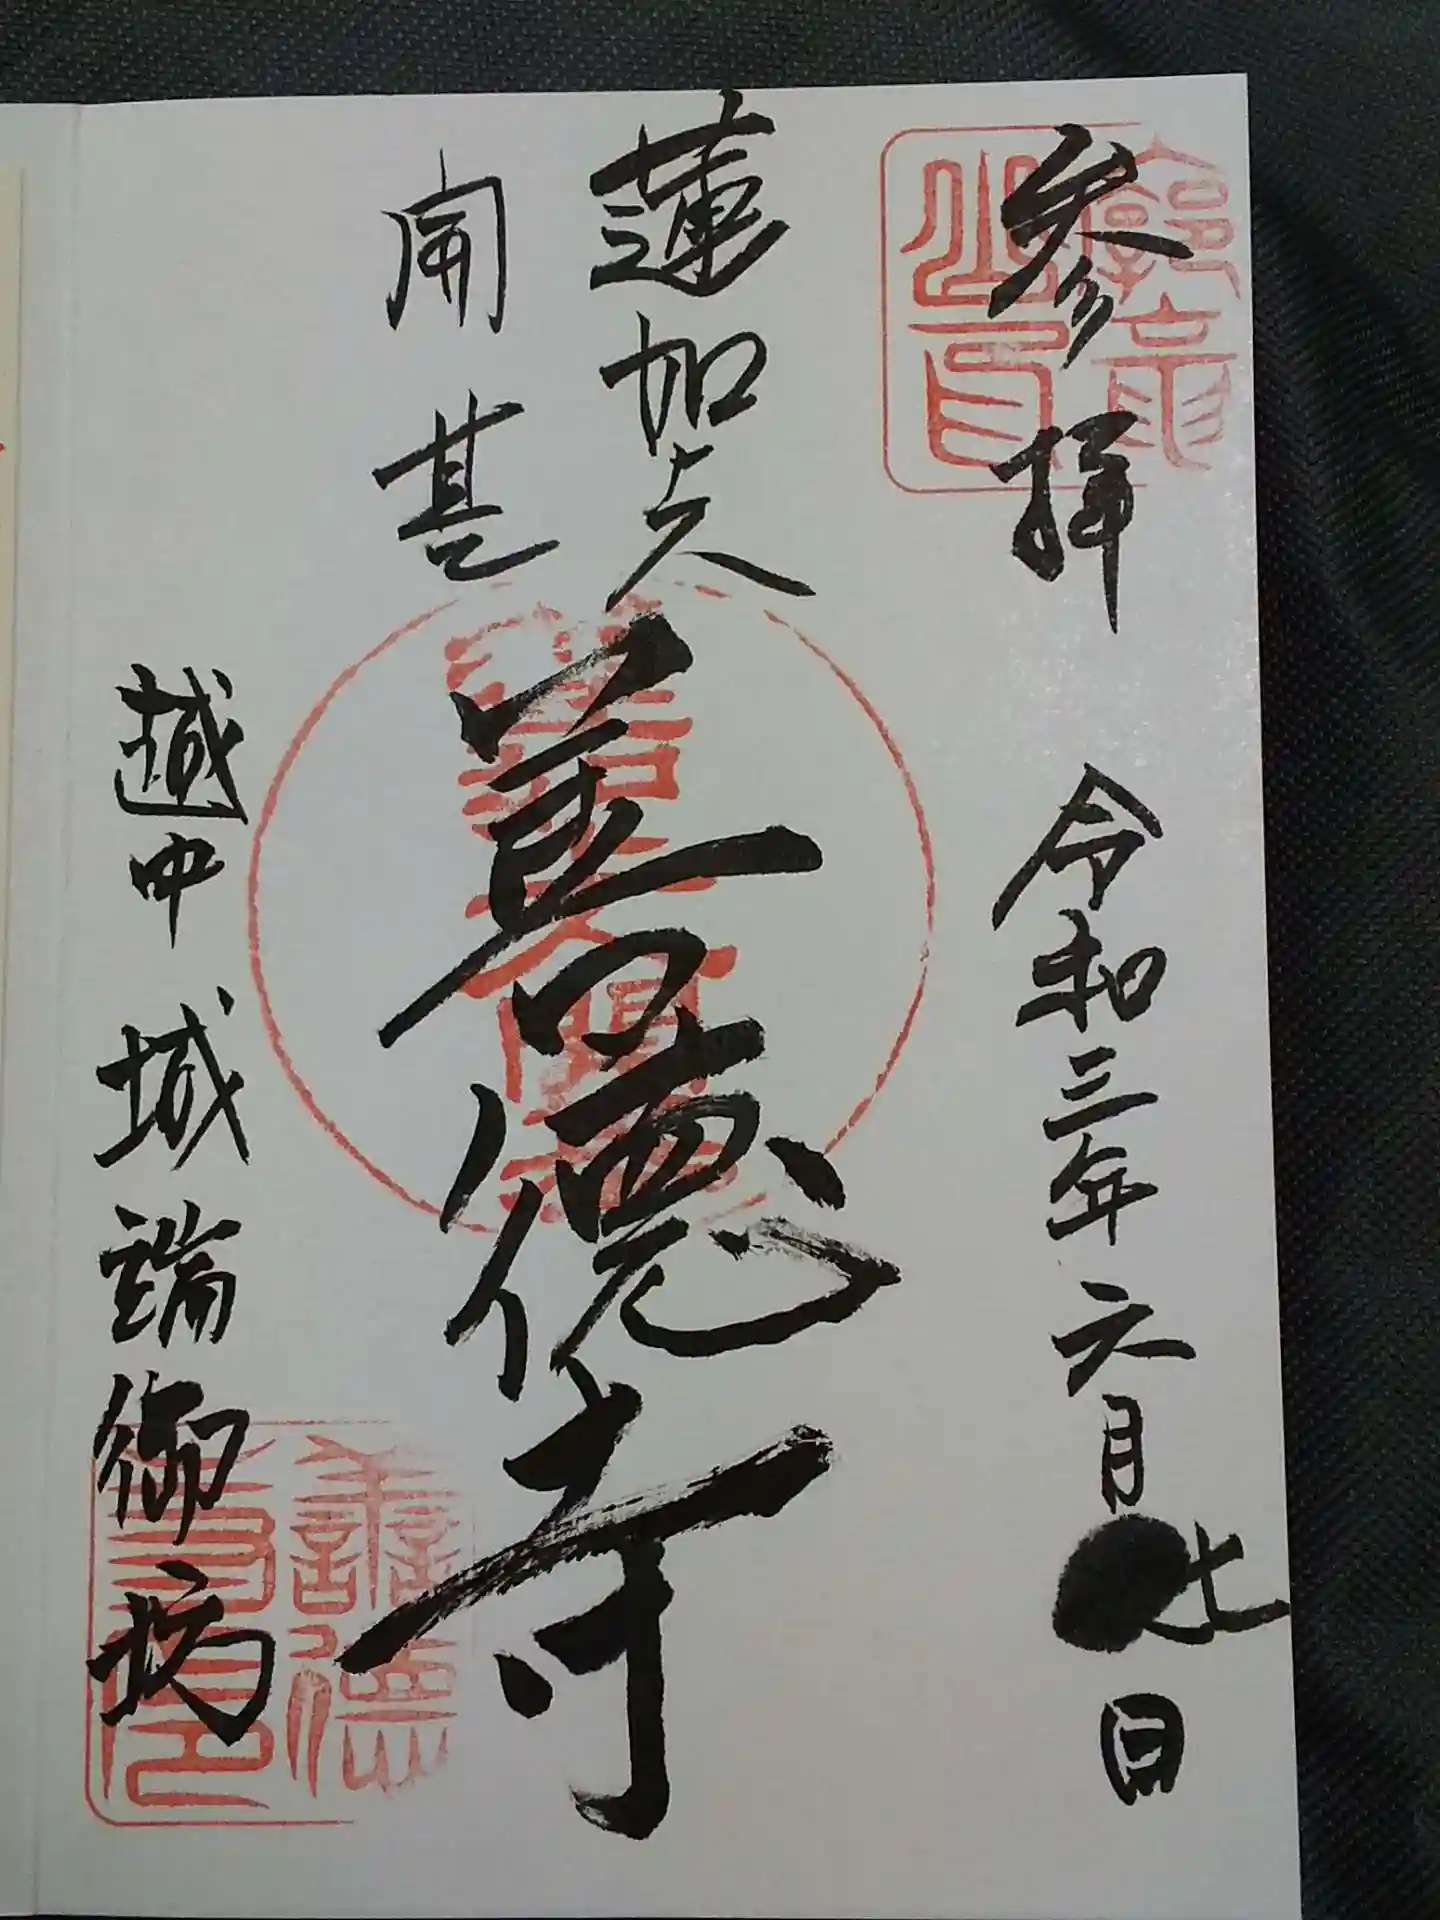 参拝 令和三年六月七日
蓮如上人
開基
善徳寺
越中 城端御坊
善徳寺印